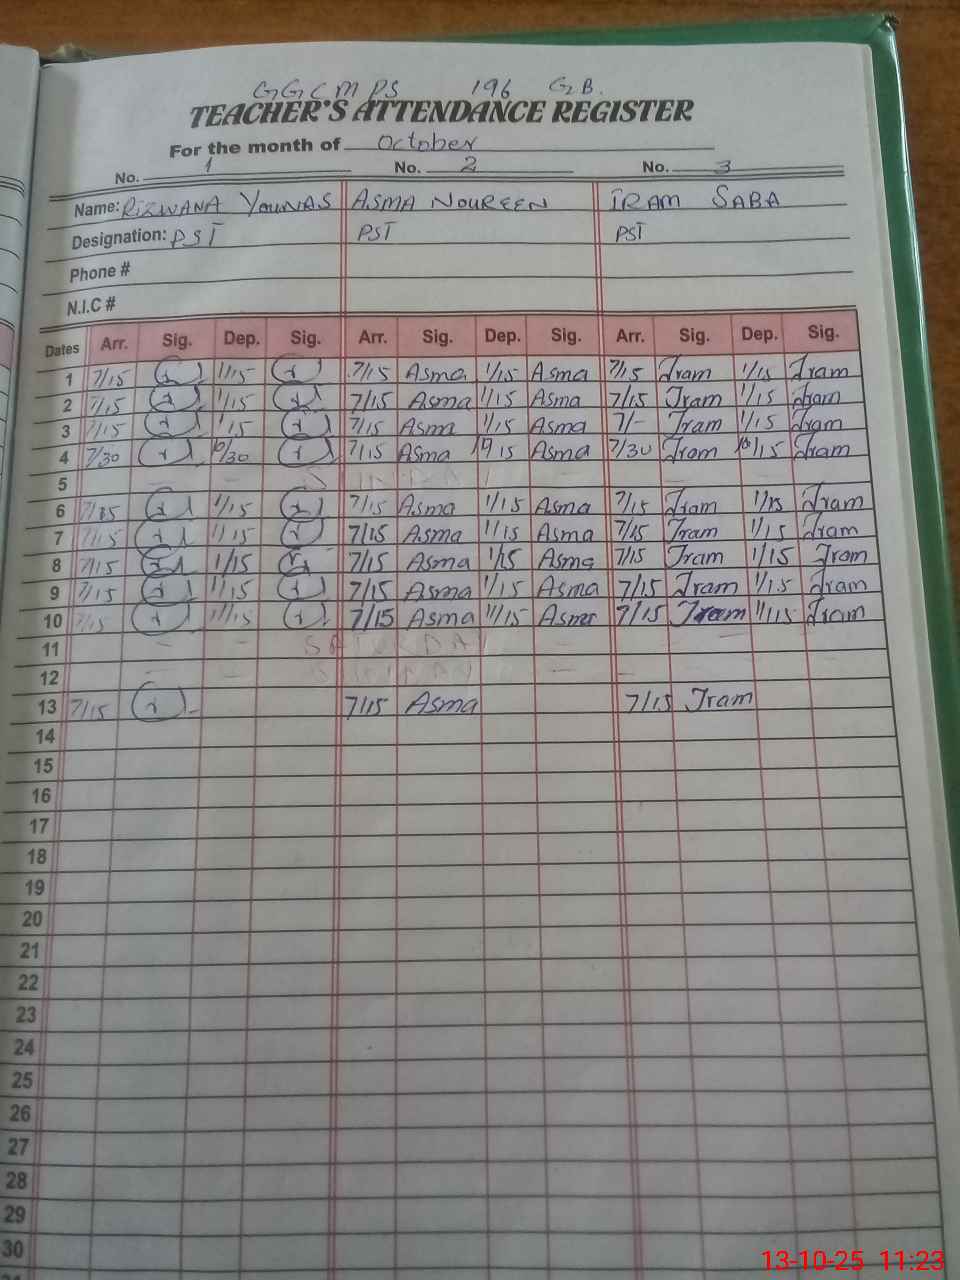 GGCMPS 196 GB.
TEACHER'S ATTENDANCE REGISTER
For the month of October
No. 1 No. 2 No. 3
Name: RIZWANA YOUNAS ASMA NOUREEN IRAM SABA
Designation: PST PST PST
Phone #
N.I.C #
Dates Arr. Sig. Dep. Sig. Arr. Sig. Dep. Sig. Arr. Sig. Dep. Sig.
1 7/15 1/15 7/15 Asma 1/15 Asma 7/15 Iram 1/15 Iram
2 7/15 1/15 7/15 Asma 1/15 Asma 7/15 Iram 1/15 Iram
3 7/15 1/15 7/15 Asma 1/15 Asma 7/- Iram 1/15 Iram
4 7/30 7/15 Asma Asma 7/30 Iram Iram
5 SUNDAY
6 7/15 1/15 7/15 Asma 1/15 Asma 7/15 Iram 1/15 Iram
7 7/15 1/15 7/15 Asma 1/15 Asma 7/15 Iram 1/15 Iram
8 7/15 1/15 7/15 Asma 1/15 Asma 7/15 Iram 1/15 Iram
9 7/15 1/15 7/15 Asma 1/15 Asma 7/15 Iram 1/15 Iram
10 7/15 11/15 7/15 Asma 11/15 Asma 7/15 Iram 11/15 Iram
11 SATURDAY
12 SUNDAY
13 7/15 7/15 Asma 7/15 Iram
14
15
16
17
18
19
20
21
22
23
24
25
26
27
28
29
30
13-10-25 11:23